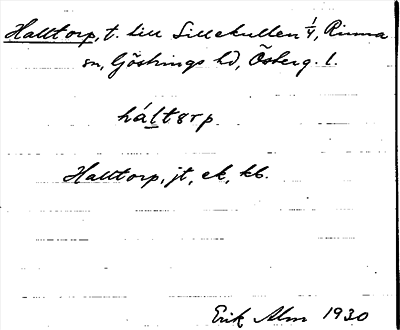 Halltorp, t. till Lillekullen 1/4, Rinna
sn, Göstrings hd, Österg. l.
háltɜrp
Halltorp, jt, ek, kb.
Erik Alm 1930